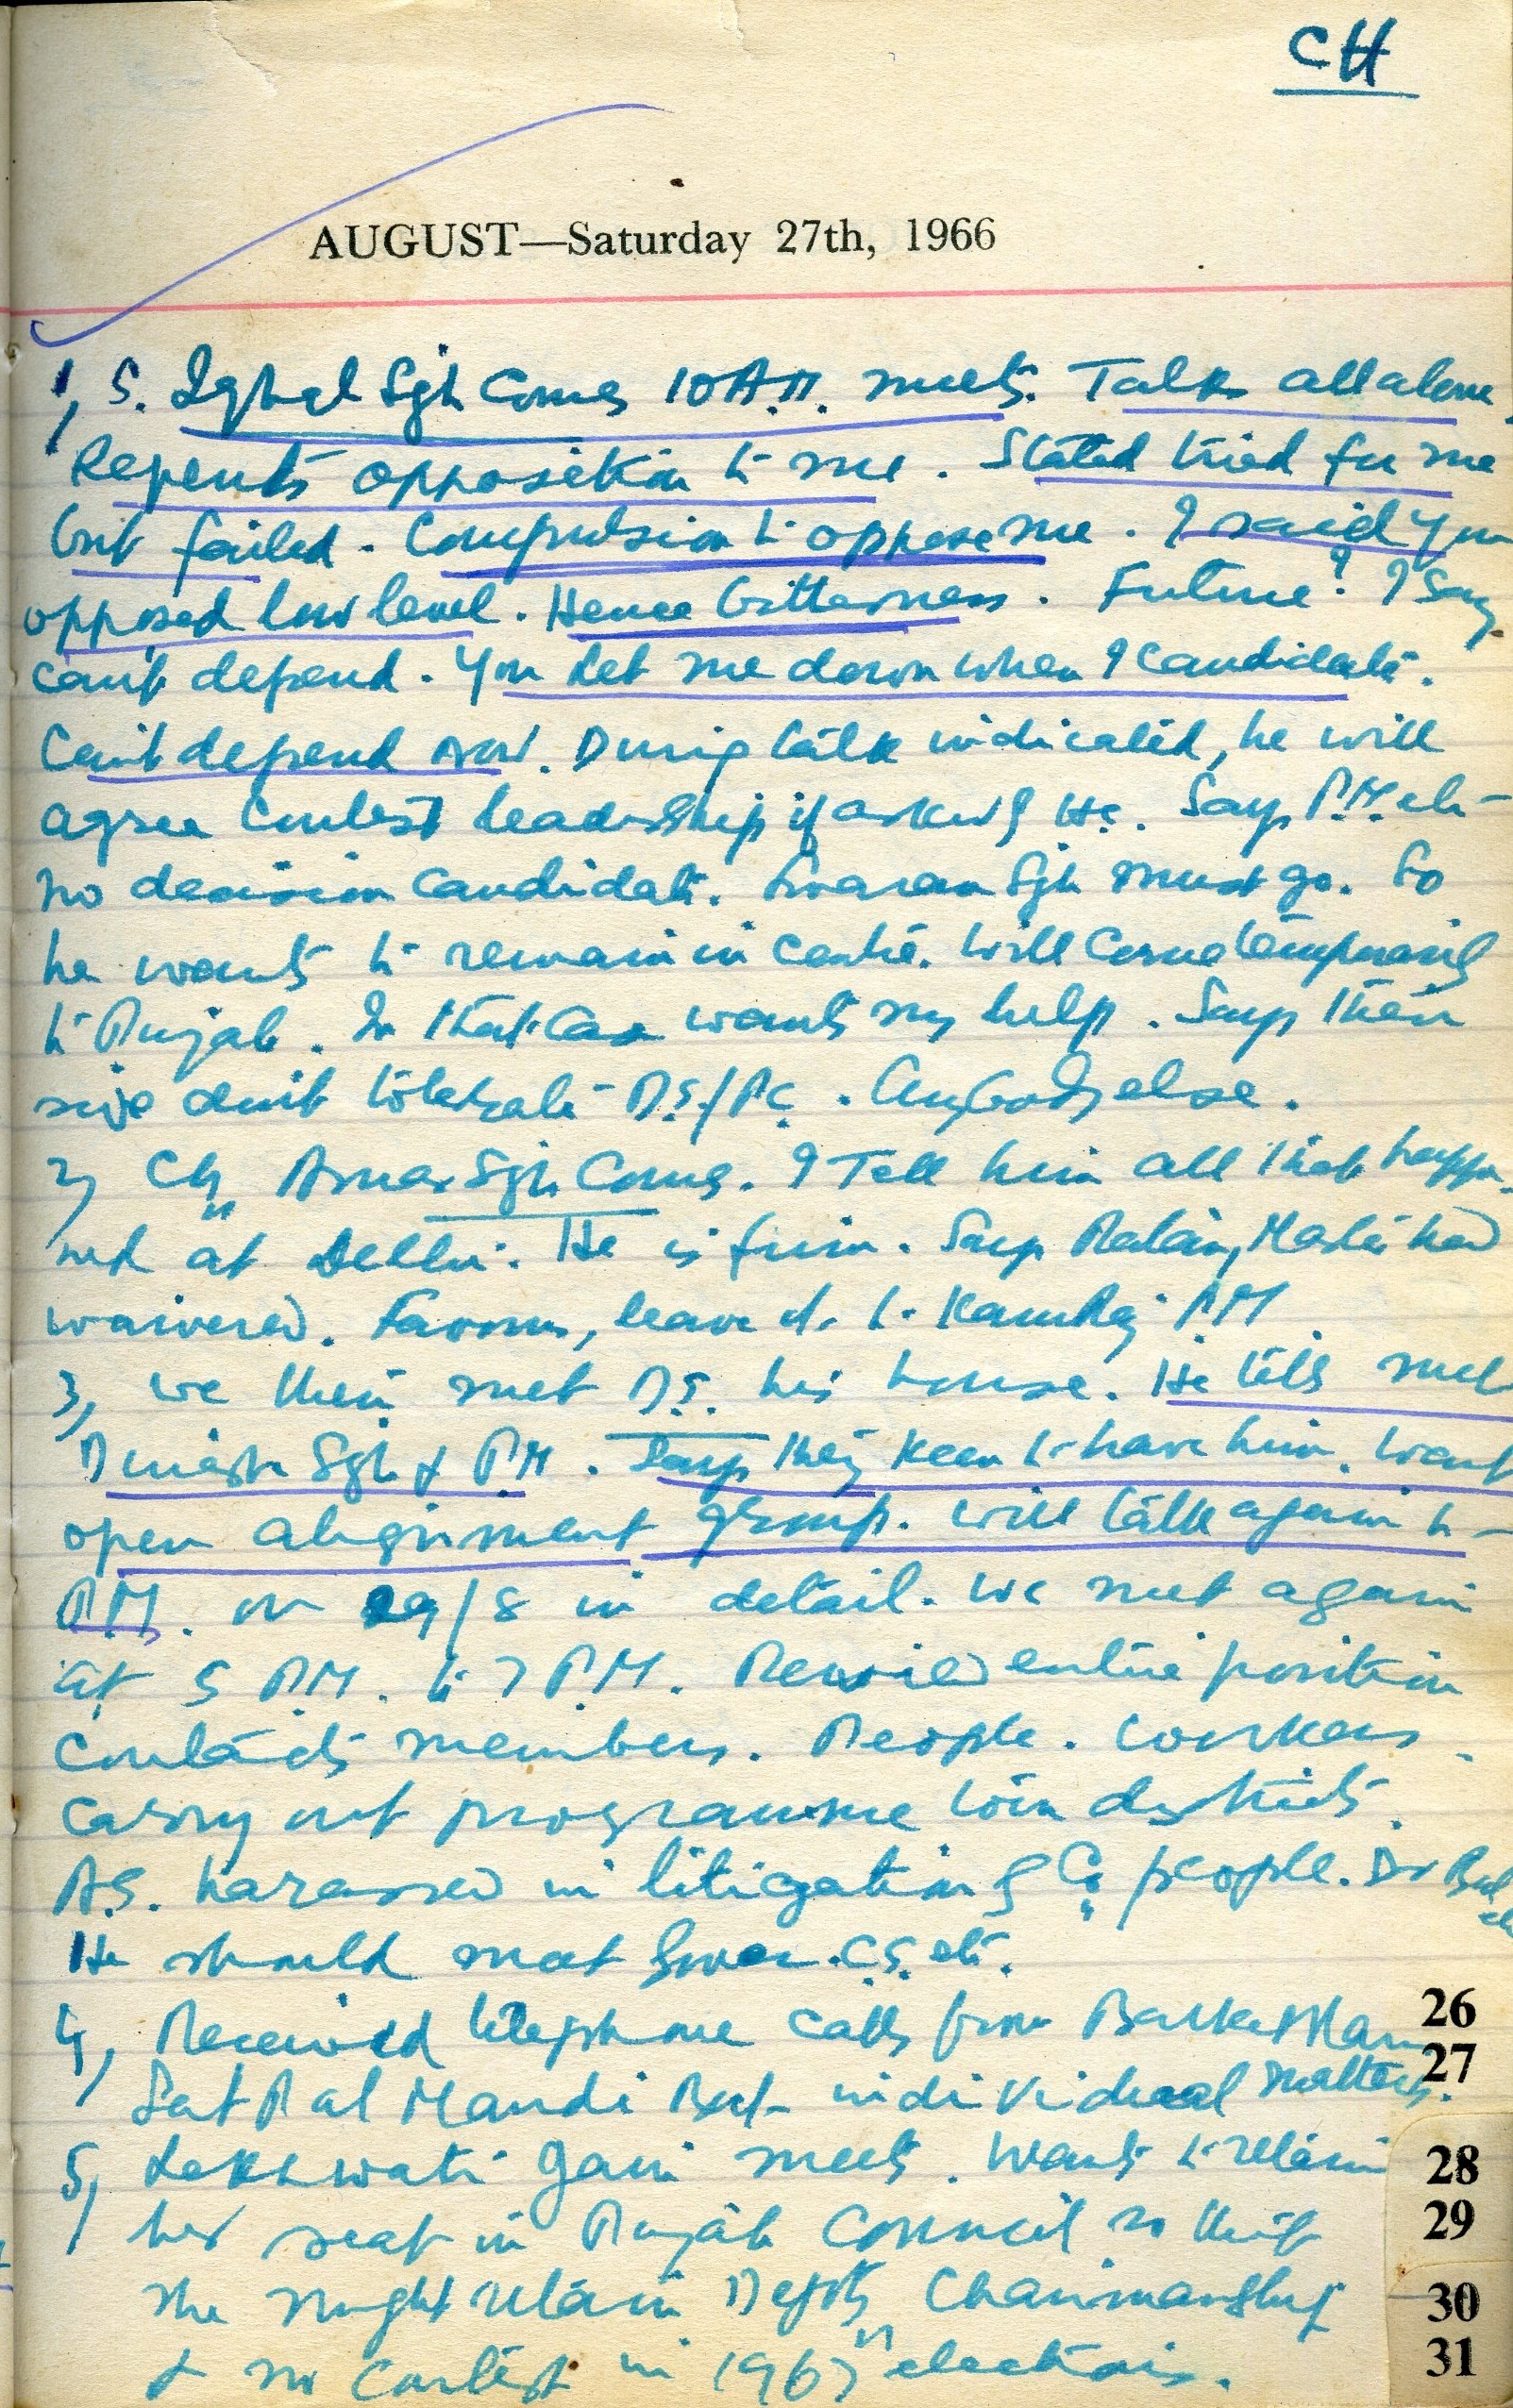 CH
AUGUST—Saturday 27th, 1966
1, S. Iqbal Sgh Comes 10 A.M. meets. Talks all alone.
Repents opposition to me. Stated tried for me
but failed. Compulsion to oppose me. I said you
opposed low level. Hence bitterness. Future? I say
can't depend. You let me down when I candidate.
Can't depend now. During talk indicated, he will
agree contest leadership if asked by H.C. Says P.M. etc
no decision candidate. Swaran Sgh must go. So
he wants to remain in centre. Will come temporarily
to Punjab. In that case wants my help. Says then
won't tolerate D.S./P.C. Anybody else.
2, Ch. Amar Sgh Comes. I Tell him all that happe-
ned at Delhi. He is firm. Says Ratan, Master had
waivered. Favours, leave it to Kamraj P.M.
3, we then met D.S. his house. He tells met
Dinesh Sgh & P.M. Says they keen to have him. Want
open alignment group. Will talk again to
P.M. on 29/8 in detail. We met again
at 5 P.M. to 7 P.M. Review entire position
Contacts members. People. Workers.
Carry out programme tour districts.
A.S. harassed in litigation by people. Dr
He should meet Swarn C.S. etc.
4, Received telephone calls from
Sat Pal Mandi individual matters.
5, Lekhwati Jain meets. Wants to retain
her seat in Punjab Council so that
she might retain Depty Chairmanship
& no contest in 1967 elections.
26
27
28
29
30
31